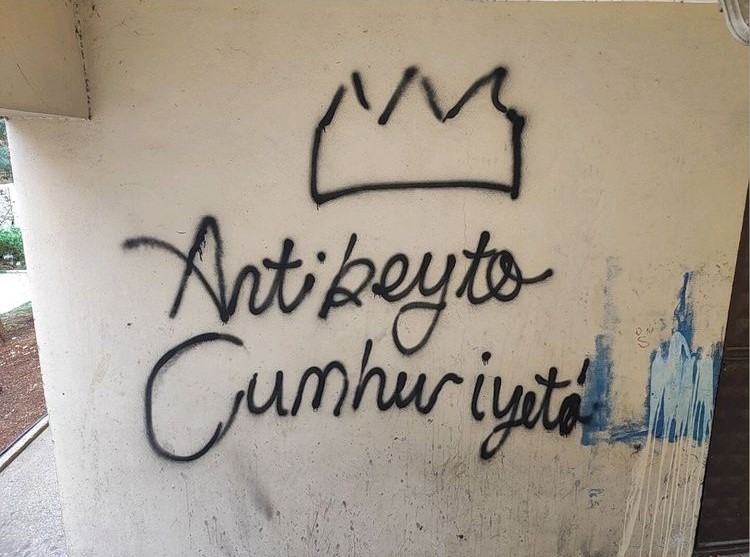 Antibeyto
Cumhuriyetá